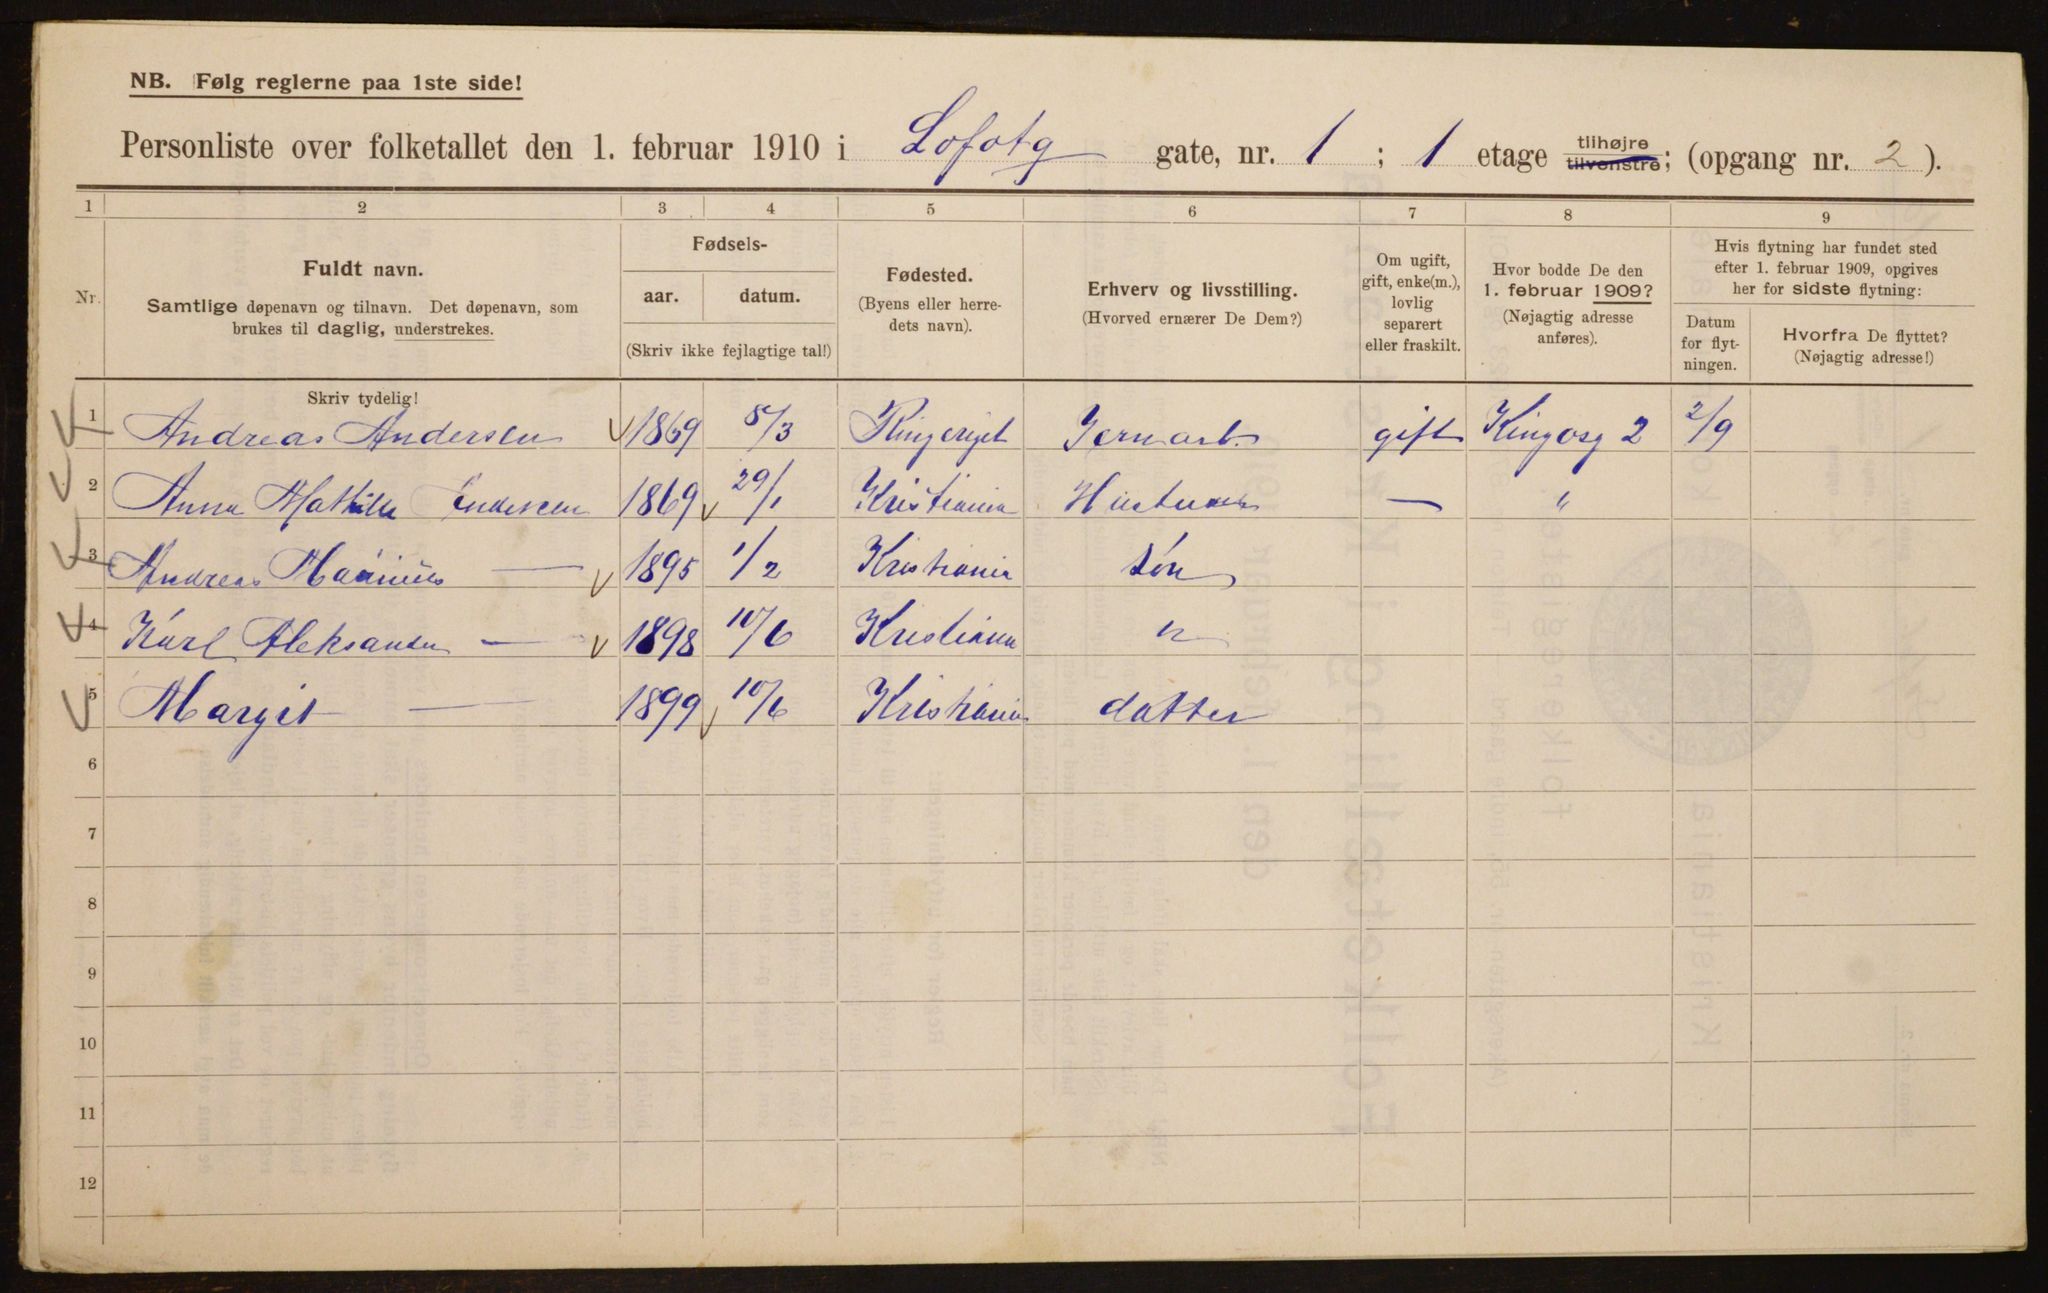 NB. Følg reglerne paa 1ste side!
Personliste over folketallet den 1. februar 1910 i Lofotg gate, nr. 1 ; 1 etage tilhøjre tilvenstre; (opgang nr. 2 ).
1 2 3 4 5 6 7 8 9
Nr.
Fuldt navn.
Samtlige døpenavn og tilnavn. Det døpenavn, som
brukes til daglig, understrekes.
Fødsels-
aar. datum.
(Skriv ikke fejlagtige tal!)
Fødested.
(Byens eller herre-
dets navn).
Erhverv og livsstilling.
(Hvorved ernærer De Dem?)
Om ugift,
gift, enke(m.),
lovlig
separert
eller fraskilt.
Hvor bodde De den
1. februar 1909?
(Nøjagtig adresse
anføres).
Hvis flytning har fundet sted
efter 1. februar 1909, opgives
her for sidste flytning:
Datum
for flyt-
ningen.
Hvorfra De flyttet?
(Nøjagtig adresse!)
Skriv tydelig!
1 Andreas Andersen 1869 5/3 Ringeriget Jernarb. gift Kingosg 2 2/9
2 Anna Mathilde Andersen 1869 29/1 Kristiania Hustru — "
3 Andreas Marinius — 1895 1/2 Kristiania søn
4 Karl Aleksander — 1898 10/6 Kristiania "
5 Margit — 1899 10/6 Kristiania datter
6
7
8
9
10
11
12